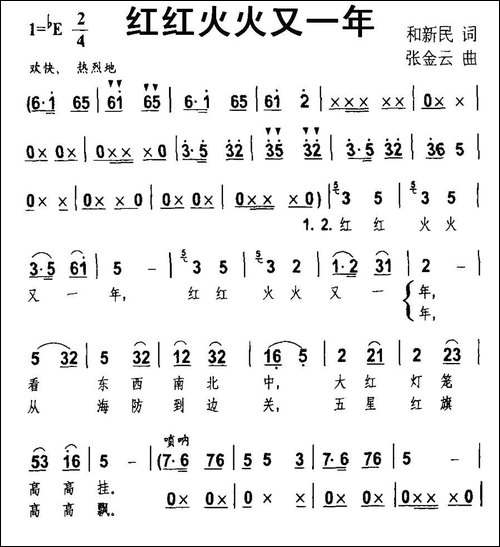 红红火火又一年
1=♭E 2/4
和新民 词
张金云 曲
欢快、热烈地
(6·1 65 | 61 65 | 6·1 65 | 61 2 | ××× ×× | 0× × |
0× 0× | 0×× ×0 | 3·5 32 | 35 32 | 3·5 32 | 36 5 |
0× × | 0× × | 0× 0× | 0×× ×0) | 3 5 | 3 5 |
1. 2. 红 红 火 火
3·5 61 | 5 - | 3 5 | 3 5 | 1·2 31 | 2 - |
又 一 年, 红 红 火 火 又 一 年,
年,
5 32 | 5 32 | 12 32 | 16 5 | 2 21 | 2 23 |
看 东 西 南 北 中, 大 红 灯 笼
从 海 防 到 边 关, 五 星 红 旗
唢呐
53 16 | 5 - | (7·6 76 | 5 5 3 | 7·6 76 | 5 - |
高 高 挂。
0× 0× | 0× × | 0× 0× | 0×× ×0 |
高 高 飘。